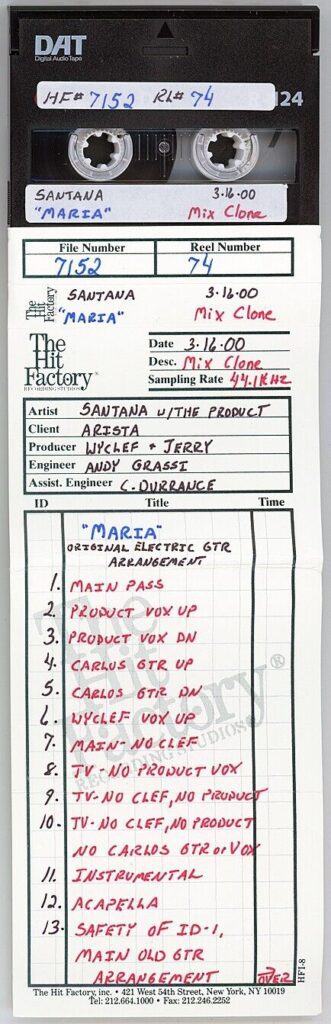 DAT
Digital Audio Tape
HF# 7152 RL# 74
124
SANTANA 3·16·00
"MARIA" Mix Clone
File Number Reel Number
7152 74
The Hit Factory
SANTANA 3·16·00
"MARIA" Mix Clone
The
Hit
Factory®
RECORDING STUDIOS
Date 3·16·00
Desc. Mix Clone
Sampling Rate 44.1KHz
Artist SANTANA w/THE PRODUCT
Client ARISTA
Producer WYCLEF + JERRY
Engineer ANDY GRASSI
Assist. Engineer C. DURRANCE
ID Title Time
"MARIA"
ORIGINAL ELECTRIC GTR
ARRANGEMENT
1. MAIN PASS
2. PRODUCT VOX UP
3. PRODUCT VOX DN
4. CARLOS GTR UP
5. CARLOS GTR DN
6. WYCLEF VOX UP
7. MAIN-NO CLEF
8. TV-NO PRODUCT VOX
9. TV-NO CLEF, NO PRODUCT
10. TV-NO CLEF, NO PRODUCT
NO CARLOS GTR or VOX
11. INSTRUMENTAL
12. ACAPELLA
13. SAFETY OF ID-1,
MAIN OLD GTR
ARRANGEMENT
OVER
The Hit Factory®
RECORDING STUDIOS
HFI-8
The Hit Factory, inc. • 421 West 54th Street, New York, NY 10019
Tel: 212.664.1000 • Fax: 212.246.2252